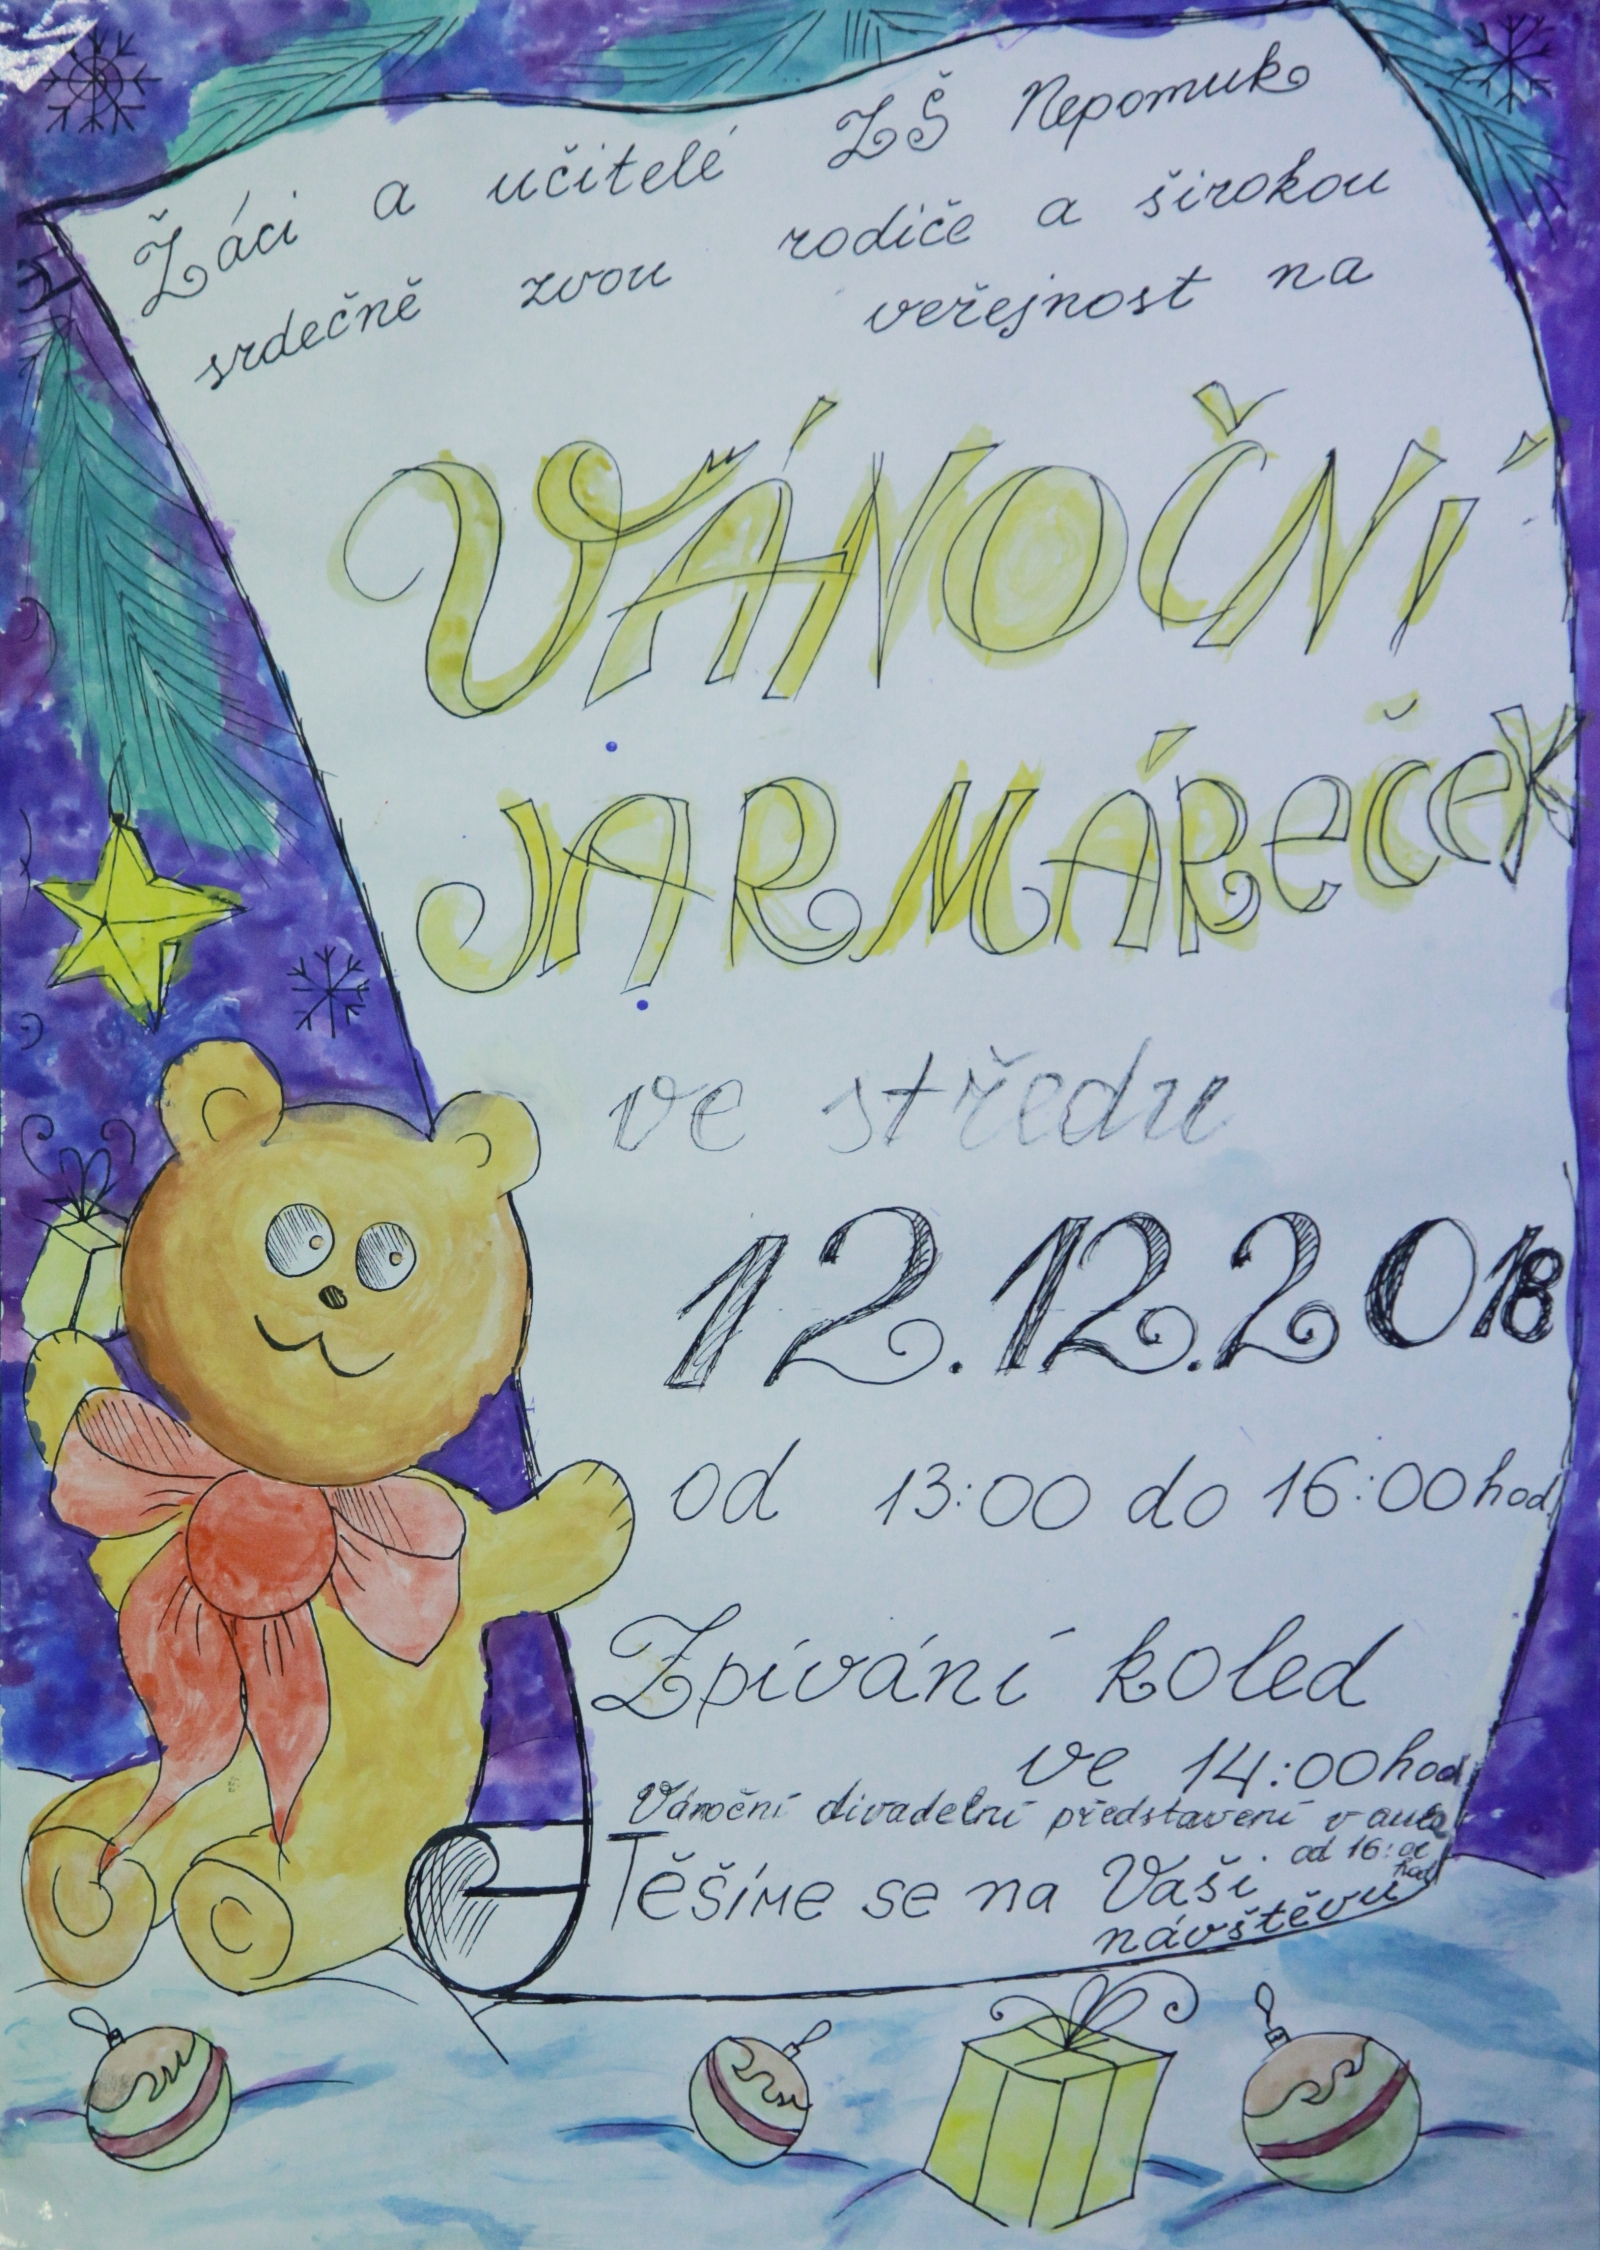 Žáci a učitelé ZŠ Nepomuk
srdečně zvou rodiče a širokou
veřejnost na
VÁNOČNÍ
JARMÁREČEK
ve středu
12.12.2018
od 13:00 do 16:00 hod.
Zpívání koled
ve 14:00 hod.
Vánoční divadelní představení v aule
od 16:00
hod.
Těšíme se na Vaši
návštěvu